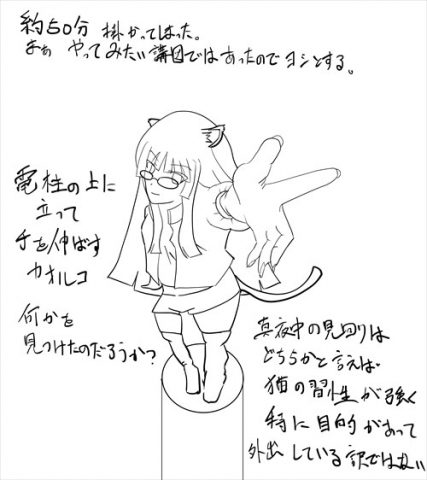 約50分 掛かってしまった。
まぁ やってみたい構図ではあったのでヨシとする。
電柱の上に
立って
手を伸ばす
カオルコ
何かを
見つけたのだろうか?
真夜中の見回りは
どちらかと言えば
猫の習性が強く
特に目的があって
外出している訳ではない